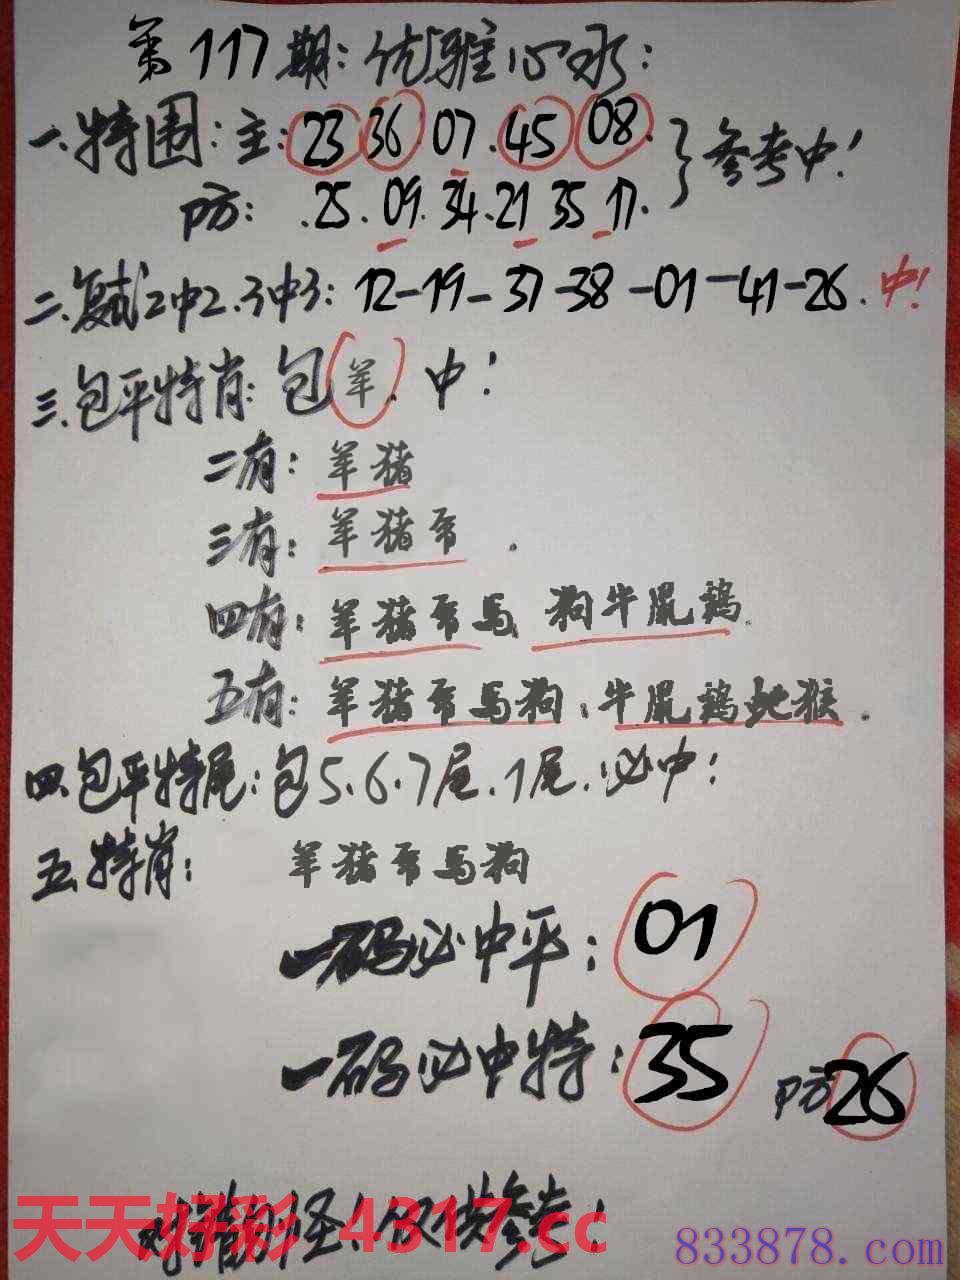 第117期:优雅心水:
一.特围:主:23 36.07.45 08.}参考中!
防:.25.09.34.21 35.17.
二.复试2中2.3中3:12-19-37-38-01-41-26.中!
三.包平特肖:包羊.中!
二有:羊猪
三有:羊猪兔.
四有:羊猪兔马.狗牛鼠鸡.
五有:羊猪兔马狗.牛鼠鸡蛇猴.
四.包平特尾:包5.6.7尾.1尾.必中!
五.特肖:羊猪兔马狗
一码必中平:01
一码必中特:35 防26
对错勿怪!仅供参考!
天天好彩 4317.cc
833878.com